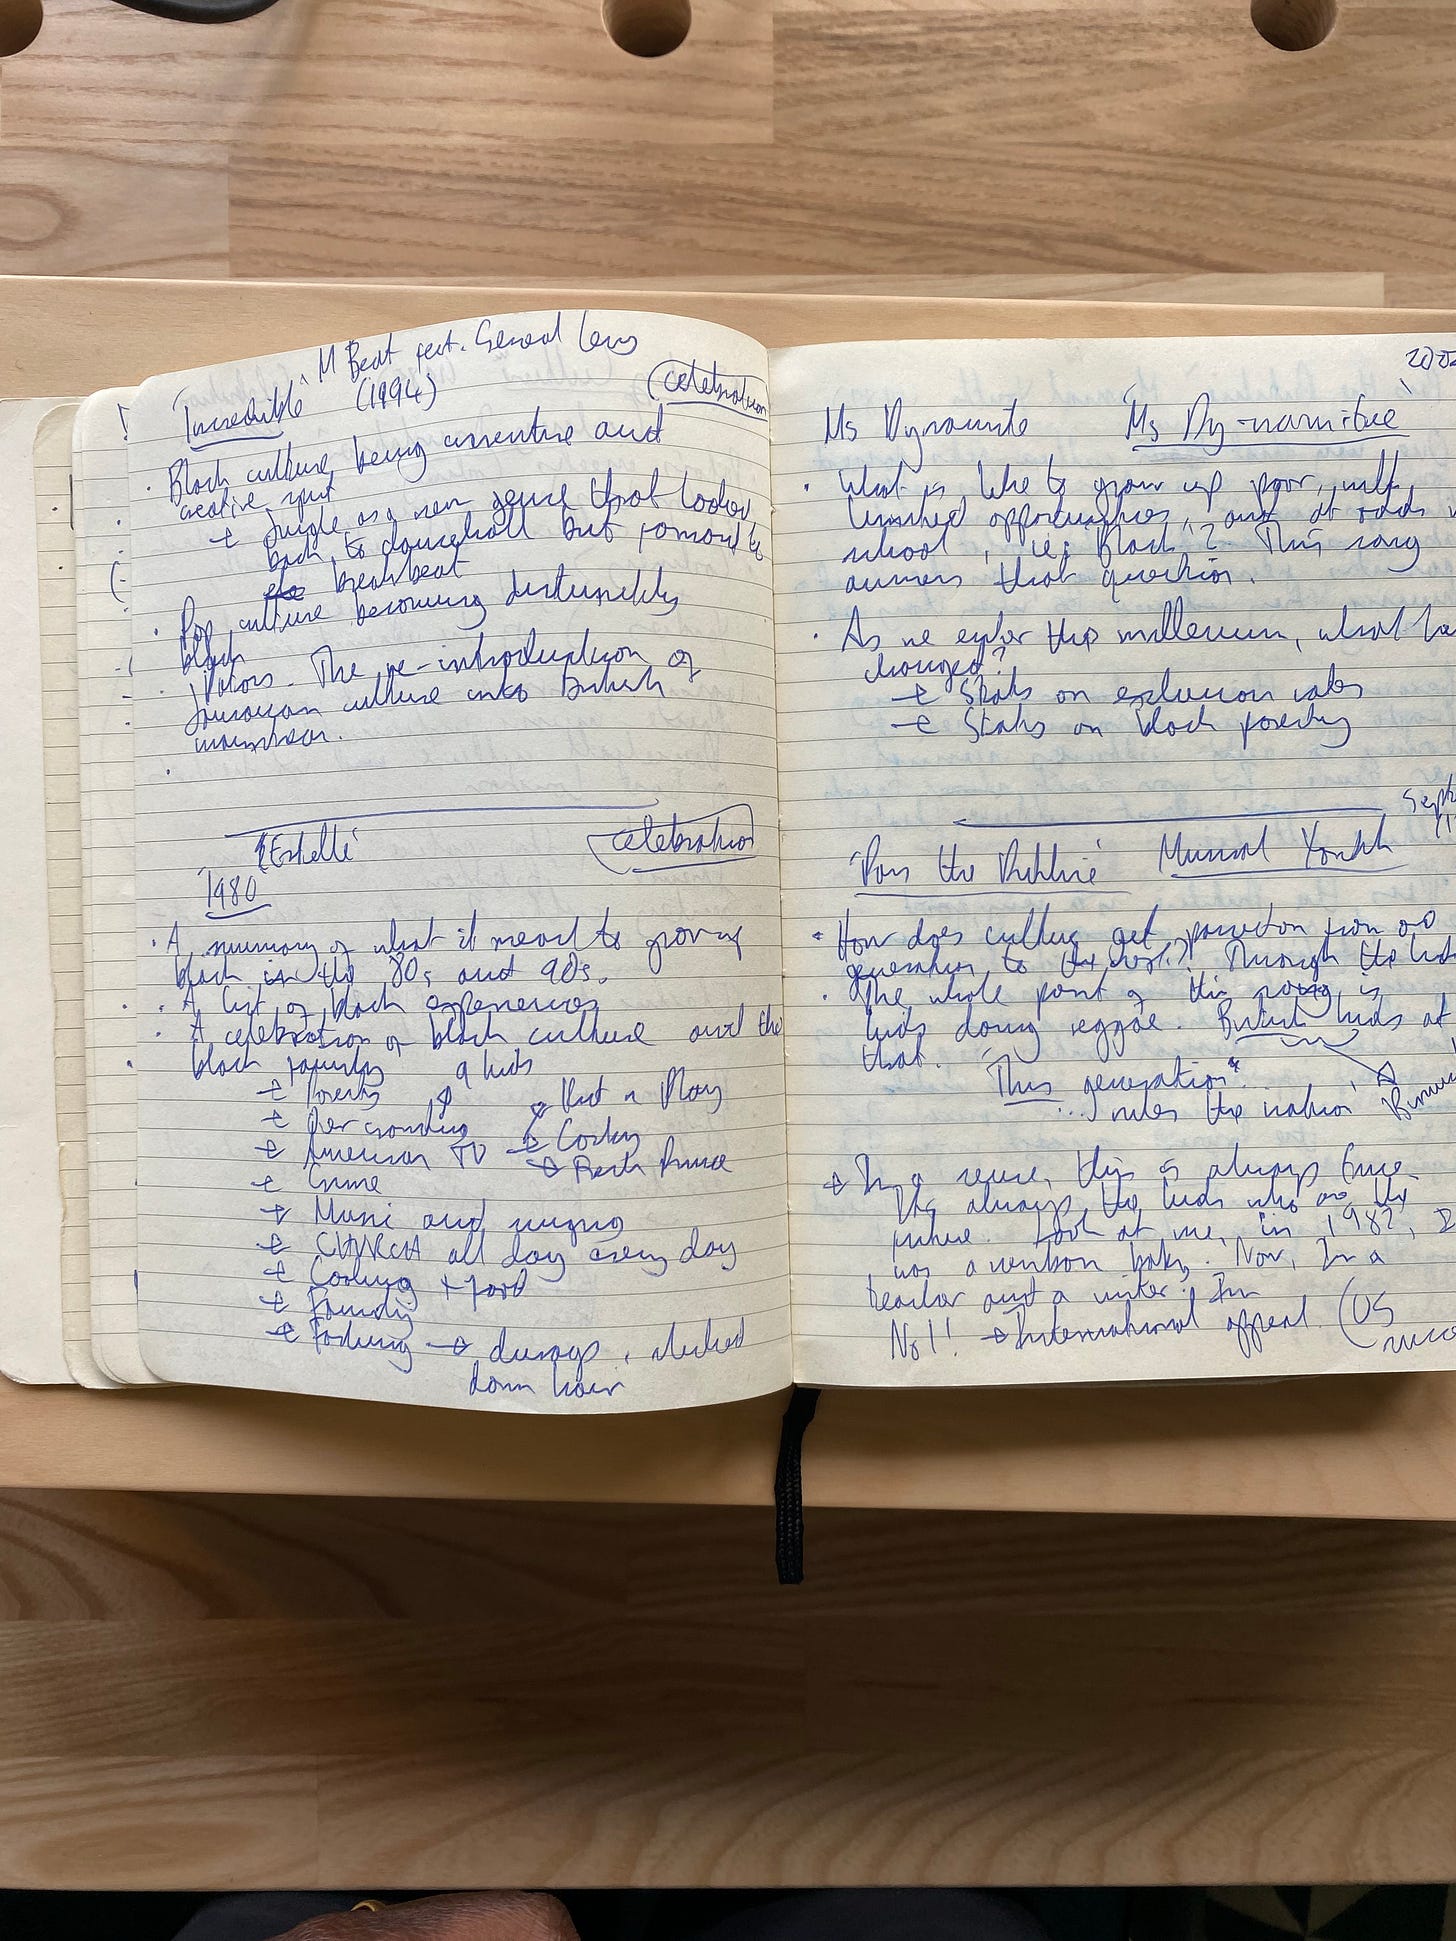 M Beat feat. General Levy
'Incredible' (1994)
celebration
· Black culture being inventive and
creative input
→ Jungle as a new genre that looks
back to dancehall but forward to
breakbeat
· Pop culture becoming distinctly
black
· Visions. The re-introduction of
Jamaican culture into British
mainstream.
'Estelle'
celebration
1980
· A summary of what it meant to grow up
black in the 80s and 90s.
· A list of black experiences
· A celebration of black culture and the
black family
9 kids
→ Poverty
Kid n Play
→ Overcrowding
→ Cosby
→ American TV
→ Fresh Prince
→ Crime
→ Music and singing
→ CHURCH all day every day
→ Cooking + food
→ Family
→ Fashion → , slicked
down hair
Ms Dynamite 'Ms Dy-na-mi-tee'
· What is like to grow up poor, with
limited opportunities, and at odds
school, ie: Black? This song
answers that question.
· As we enter this millennium, what
changed?
→ Stats on exclusion rates
→ Stats on black poverty
'Pass the Dutchie' Musical Youth
· How does culture get passed on from one
generation to the next? Through the kids
· The whole point of this song is
kids doing reggae. British kids at
that.
"This generation"
... rules the nation'
→ In a sense, this is always true.
It's always the kids who are the
future. Look at me, in 1982, I
was a newborn baby. Now, I'm a
teacher and a writer. I'm
No1! → International appeal. (US